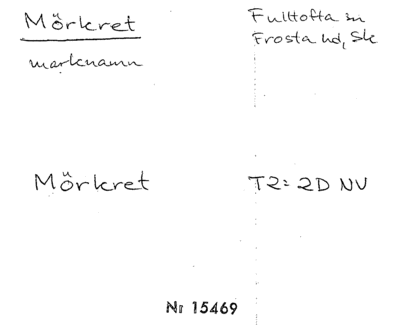 Mörkret
Fulltofta sn
Frosta hd, Sk
marknamn
Mörkret
T2: 2D NV
Nr 15469